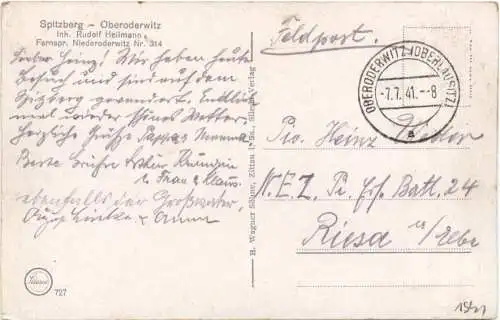 Spitzberg – Oberoderwitz
Inh. Rudolf Heilmann
Fernspr. Niederoderwitz Nr. 314
Lieber Heinz! Wir haben heute
Besuch und sind auf dem
Spizberg gewandert. Endlich
mal wieder schönes Wetter.
Herzliche Grüsse Papa
Beste Grüße
u. Frau u. Klaus.
ebenfalls der Großvater
Linke u. Anna
727
H. Wagner Söhne, Zittau i. Sa. Verlag
Feldpost.
OBERODERWITZ (OBERLAUSITZ)
-7.7.41.--8
a
Pio. Heinz
Pi. Ers. Batl. 24
Riesa a/Elbe